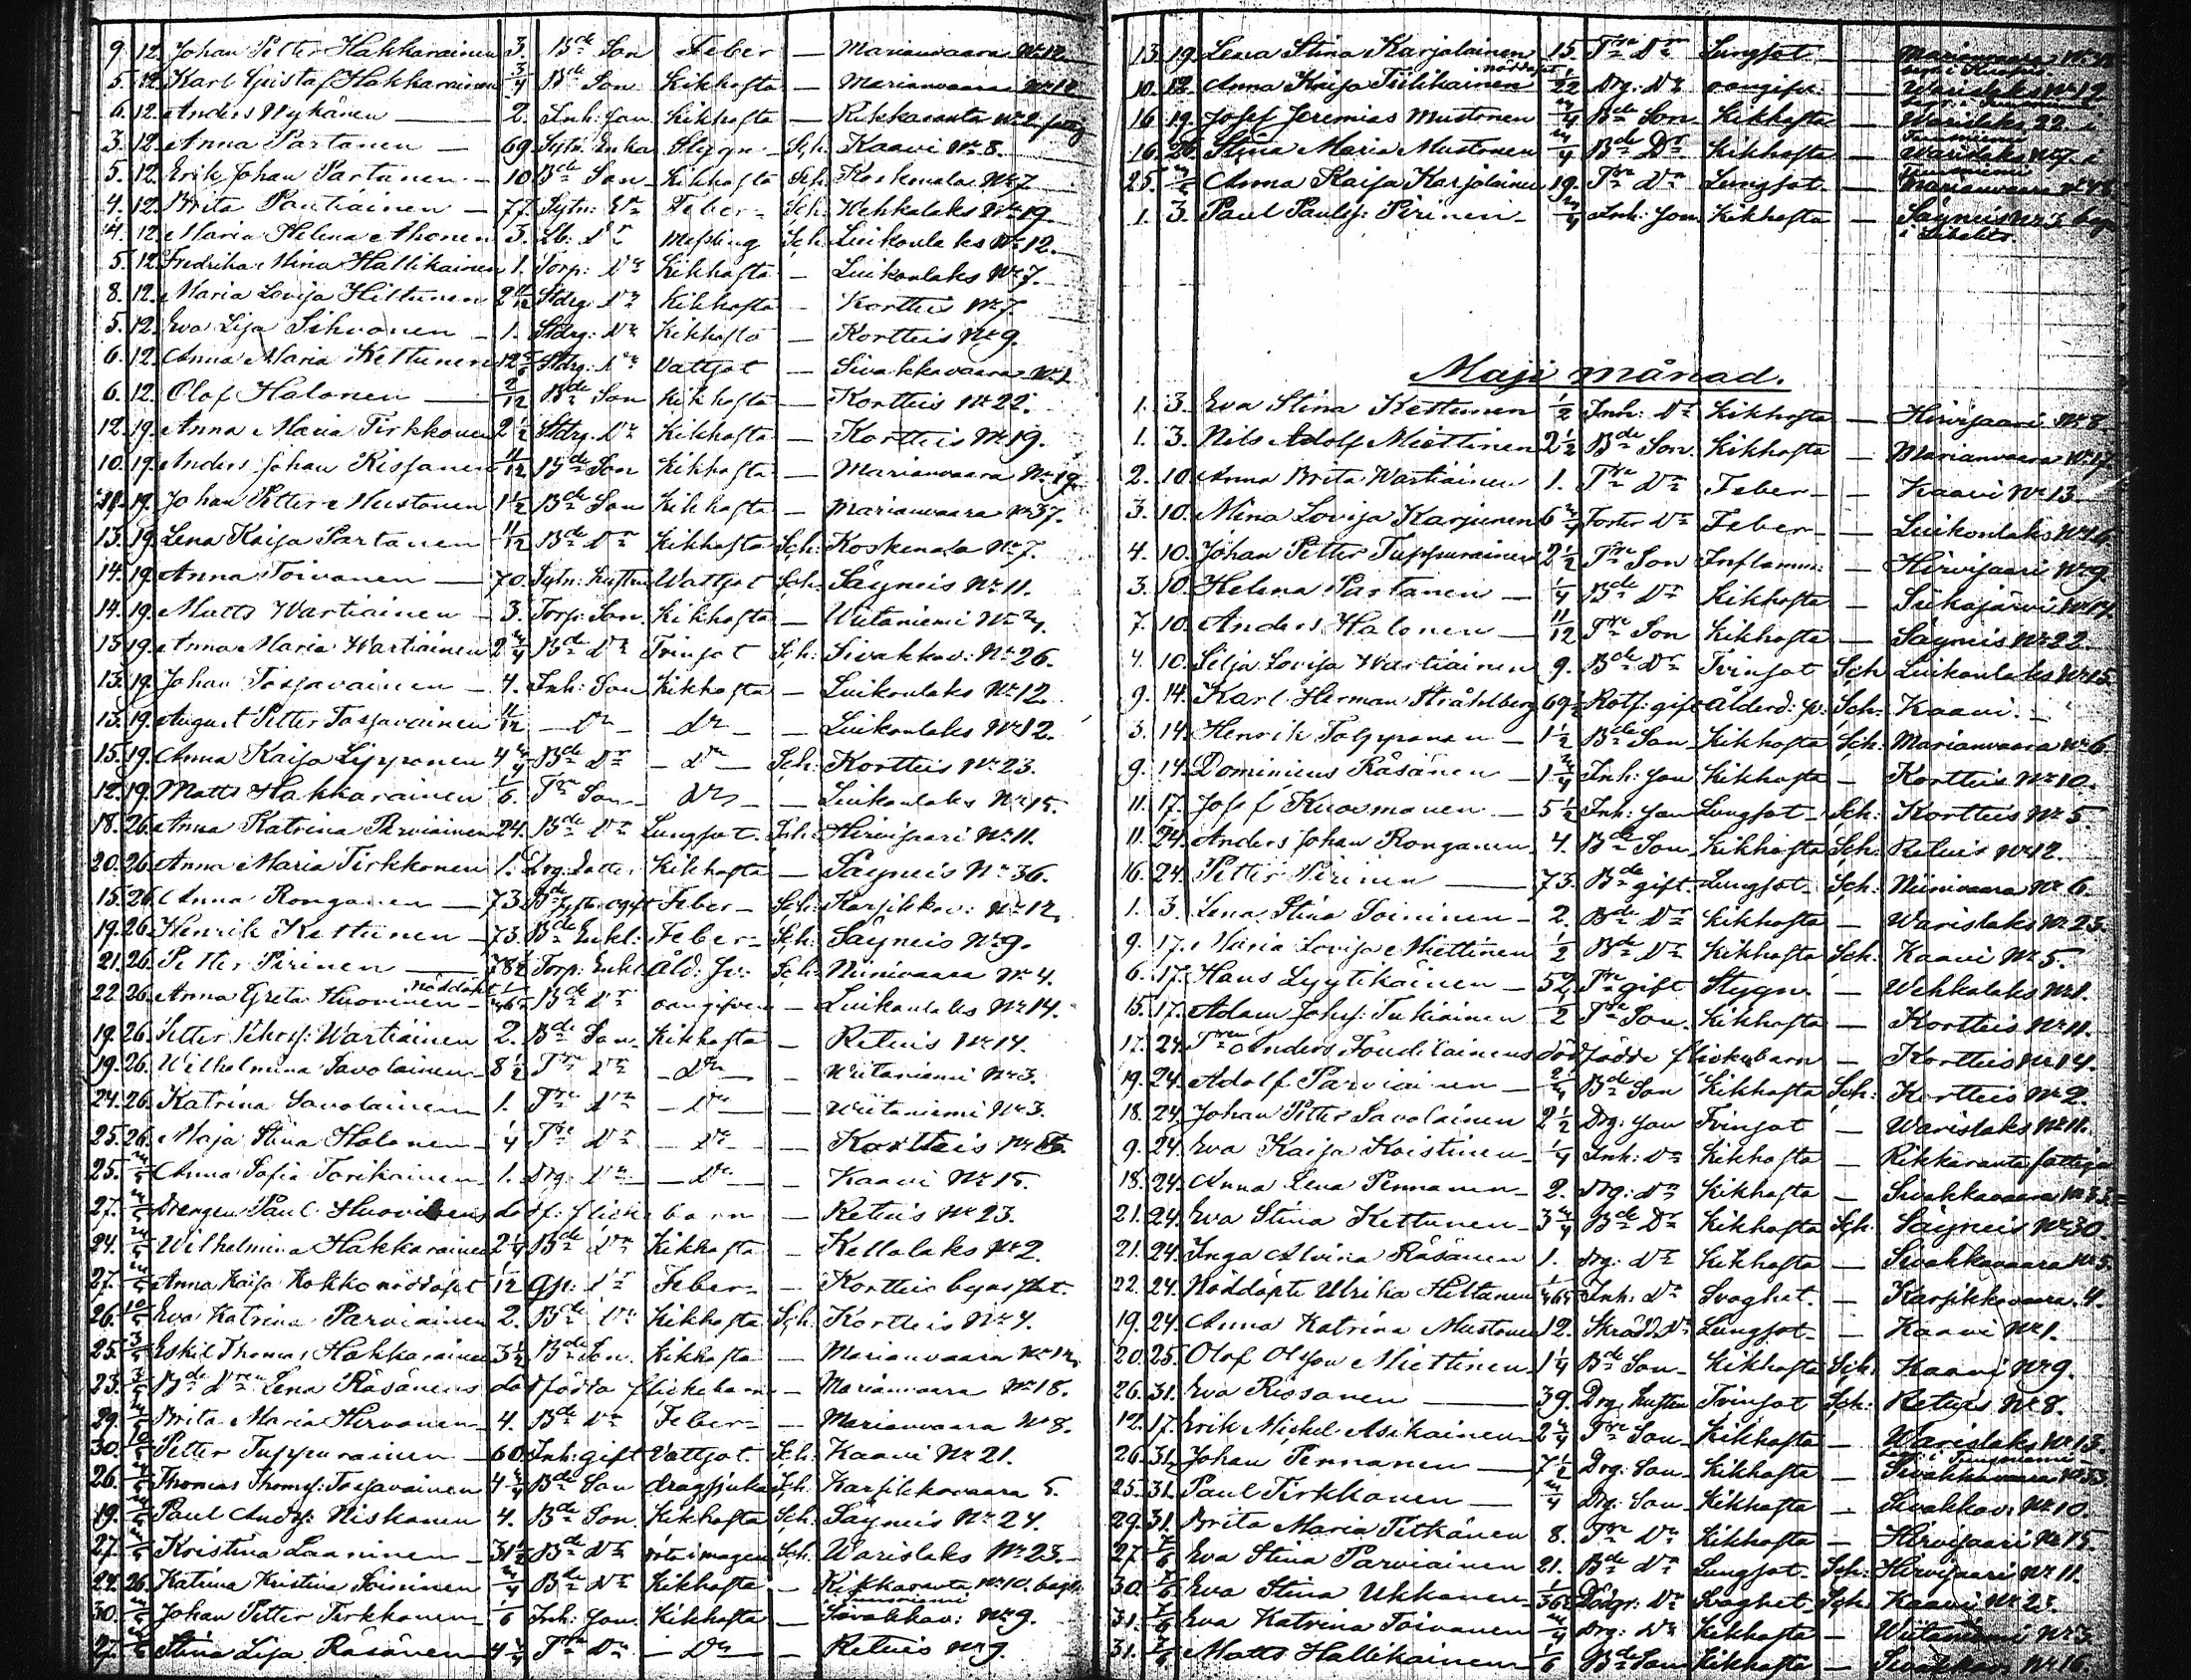 9. 12. Johan Petter Hakkarainen 3. Bde Son Feber — Marianvaara No 12
5. 12. Karl Gustaf Hakkarainen 3/4 Bde Son Kikhosta — Marianvaara No 12
6. 12. Anders Nykänen — 2. Inh: Son Kikhosta — Rikkaranta No 2
3. 12. Anna Partanen — 69 Sytn: Enka Stygn Sch: Kaavi No 8.
5. 12. Erik Johan Partanen — 10 Bde Son Kikhosta Sch: Koskenala No 7
4. 12. Brita Pantiainen — 77. Sytn: Feber Sch: Wehkalaks No 19
4. 12. Maria Helena Ahonen 3. Dr Messling Sch: Luikonlaks No 12.
5. 12. Fredrika Mina Hallikainen 1. Torp: Dr Kikhosta — Luikonlaks No 7.
8. 12. Maria Lovisa Hiltunen 2 Stdrg: Dr Kikhosta — Kortteis No 7.
5. 12. Eva Lisa Sihvonen — 1. Stdrg: Dr Kikhosta — Kortteis No 9.
6. 12. Anna Maria Kettunen 12 Stdrg: Dr Vattsot — Sivakkavaara No 1
6. 12. Olof Halonen — 2/12 Bde Son Kikhosta — Kortteis No 22.
12. 19. Anna Maria Tirkkonen 2 1/2 Stdrg: Dr Kikhosta — Kortteis No 19.
10. 19. Anders Johan Rissanen 11/12 Bde Son Kikhosta — Marianvaara No 19
11. 19. Johan Petter Mustonen 1 1/2 Bde Son Kikhosta — Marianvaara No 37.
13. 19. Lena Kaisa Partanen 11/12 Bde Dr Kikhosta Sch: Koskenala No 7.
14. 19. Anna Toivanen — 70. Sytn: hustru Wattsot Sch: Säyneis No 11.
14. 19. Matts Wartiainen — 3. Torp: Son Kikhosta — Wiitaniemi No 4.
13. 19. Anna Maria Wartiainen 2 3/4 Bde Dr Tvinsot Sch: Sivakkav: No 26.
13. 19. Johan Tossavainen — 4. Inh: Son Kikhosta — Luikonlaks No 12.
13. 19. August Petter Tossavainen 11/12 — Do — Do — Luikonlaks No 12.
15. 19. Anna Kaisa Lipponen 4 3/4 Bde Dr — Do — Sch: Kortteis No 23.
12. 19. Matts Hakkarainen 1/6. Trn Son Do — Luikonlaks No 15.
18. 26. Anna Katrina Parviainen 24. Bde Dr Lungsot. Sch: Hirvisaari No 11.
20. 26. Anna Maria Tirkkonen 1. Drg: Dotter Kikhosta — Säyneis No 36.
15. 26. Anna Ronganen — 73 Bde Feber — Sch: Karsikkov: No 12.
19. 26. Henrik Kettunen — 73. Bde Enkl: Feber Sch: Säyneis No 9.
21. 26. Petter Pirinen — 78 1/2 Torp: Enkl Åld: Sch: Niinivaara No 4.
22. 26. Anna Greta Huovinen nöddöpt Bde Dr oangifven — Luikonlaks No 14.
19. 26. Petter Pehrs: Wartiainen 2. Bde Son Kikhosta — Retuis No 14.
19. 26. Wilhelmina Savolainen 8 1/2 Trn Dr — Do — Wiitaniemi No 3.
24. 26. Katrina Savolainen 1. Trn Dr — Do — Wiitaniemi No 3.
25. 26. Maja Stina Halonen 1/4 Trn Dr — Do — Kortteis No
25. Anna Sofia Torikainen 1. Drg: Dr — Do — Kaavi No 15.
27. Drengen Paul Huovinens dödf: flickebarn — Retuis No 23.
24. Wilhelmina Hakkarainen 2 1/4 Bde Dr Kikhosta — Kellolaks No 2.
27. Anna Kaisa Kokko nöddöpt 1/12 Dr Feber — Kortteis
26. Eva Katrina Parviainen 2. Bde Dr Kikhosta Sch: Kortteis No 4.
25. Eskil Thomas Hakkarainen 3 1/2 Bde Son. Kikhosta — Marianvaara No 12
23. Bde Drn Lena Räsänens dödfödda flickebarn — Marianvaara No 18.
29. Brita Maria Hirvonen 4. Bde Dr Feber — Marianvaara No 8.
30. Petter Tuppurainen — 60. Inh: gift Vattsot. Sch: Kaavi No 21.
26. Thomas Thoms: Tossavainen 4 3/4 Bde Son dragsjuka Sch: Karsikkovaara 5.
19. Paul Ands: Niskanen 4. Bde Son Kikhosta Sch: Säyneis No 24.
27. Kristina Laaninen — 31 1/2 Bde Dr Sch: Warislaks No 23.
24. 26. Katrina Kristina Soininen 3/4 Bde Dr Kikhosta — Rikkaranta No 10.
30. Johan Petter Tirkkonen 1/6 Inh: Son Kikhosta — Sivakkav: No 9.
27. Stina Lisa Räsänen 4 1/4 Trn Dr — Do — Retuis No 9.
13. 19. Lena Stina Karjalainen 15. Trn Dr Lungsot
10. 12. Anna Kaisa Tiilikainen nöddöpt 1/22 Drg: Dr oangifv: — Warislaks No 12
16. 19. Josef Jeremias Mustonen 3/4 Bde Son Kikhosta — Warislaks 22.
16. 26. Stina Maria Mustonen 3/4 Bde Dr Kikhosta — Warislaks No 7.
25. Anna Kaisa Karjalainen 19. Trn Dr Lungsot — Marianvaara
1. 3. Paul Pauls: Pirinen 3/4 Inh: Son Kikhosta — Säyneis No 3
i Libelits.
Maji månad.
1. 3. Eva Stina Kettunen 1/2 Inh: Dr Kikhosta — Hirvisaari No 8.
1. 3. Nils Adolf Miettinen 2 1/2 Bde Son Kikhosta — Marianvaara No 17
2. 10. Anna Brita Wartiainen 1. Trn Dr Feber — Kaavi No 13
3. 10. Mina Lovisa Karjunen 6 3/4 Foster Dr Feber — Luikonlaks No 6.
4. 10. Johan Petter Tuppurainen 2 1/2 Trn Son Inflamm: — Hirvisaari No 9
3. 10. Helena Partanen — 1/4 Bde Dr Kikhosta — Siikajärvi No 14
7. 10. Anders Halonen — 11/12 Trn Son Kikhosta — Säyneis No 22.
4. 10. Silja Lovisa Wartiainen 9. Bde Dr Tvinsot Sch Luikonlaks No 15
9. 14. Karl Herman Stråhlberg 69 1/2 Rotf: gift Ålderd: Sch: Kaavi. —
3. 14. Henrik Tolppanen — 1 1/2 Bde Son Kikhosta Sch: Marianvaara No 6.
9. 14. Dominicus Räsänen — 1 3/4 Inh: Son Kikhosta — Kortteis No 10.
11. 17. Josef Kuosmanen — 5 1/2 Inh: Son Lungsot Sch: Kortteis No 5.
11. 24. Anders Johan Ronganen 4. Bde Son Kikhosta Sch: Retuis No 12.
16. 24. Petter Pirinen — 73. Bde gift Lungsot Sch: Niinivaara No 6.
1. 3. Lena Stina Soininen 2. Bde Dr Kikhosta — Warislaks No 23.
9. 17. Maria Lovisa Miettinen 1/2 Bde Dr Kikhosta Sch: Kaavi No 5.
6. 17. Hans Lyytikäinen — 52 Trn gift Stygn — Wehkalaks No 1.
15. 17. Adam Johs: Tukiainen 1/2 Trn Son Kikhosta — Kortteis No 11.
17. 24. Trn Anders Toudilainens dödfödde flickebarn — Kortteis No 14.
19. 24. Adolf Parviainen — 2/4 Bde Son Kikhosta Sch: Kortteis No 2.
18. 24. Johan Petter Savolainen 2 1/2 Drg: Son Tvinsot — Warislaks No 11.
9. 24. Eva Kaisa Koistinen 1/4 Inh: Dr Kikhosta — Rikkaranta fattiga
18. 24. Anna Lena Pennanen 2. Drg: Dr Kikhosta — Sivakkavaara No 33
21. 24. Eva Stina Kettunen 3 3/4 Bde Dr Kikhosta Sch: Säyneis No 30.
21. 24. Inga Alvina Räsänen 1. Drg: Dr Kikhosta — Sivakkavaara No 5.
22. 24. Nöddöpte Ulrika Hiltunen Inh: Dr Svaghet. — Karsikkovaara 4.
19. 24. Anna Katrina Mustonen 12. Skrädd: Dr Lungsot — Kaavi No 1.
20. 25. Olof Olsson Miettinen 1 1/4 Bde Son Kikhosta Sch: Kaavi No 9.
26. 31. Eva Rissanen — 39. Drg: hustru Tvinsot Sch: Retuis No 8.
12. 17. Erik Mickel Asikainen 2 3/4 Trn Son Kikhosta — Warislaks No 13.
26. 31. Johan Pennanen — 7 1/2 Drg: Son Kikhosta — Sivakkavaara No 33.
25. 31. Paul Tirkkonen — 3/4 Drg: Son Kikhosta — Sivakkav: No 10.
29. 31. Brita Maria Pitkänen 8. Trn Dr Kikhosta — Hirvisaari No 15.
27. Eva Stina Parviainen 21. Bde Dr Lungsot Sch: Hirvisaari No 11.
30. Eva Stina Ukkonen Dr Svaghet Sch: Kaavi No 2.
31. Eva Katrina Toivanen 3/4 Drg: Dr Kikhosta — Wiitaniemi No 3.
31. Matts Hallikainen 1/6 Bde Son Kikhosta — No 16